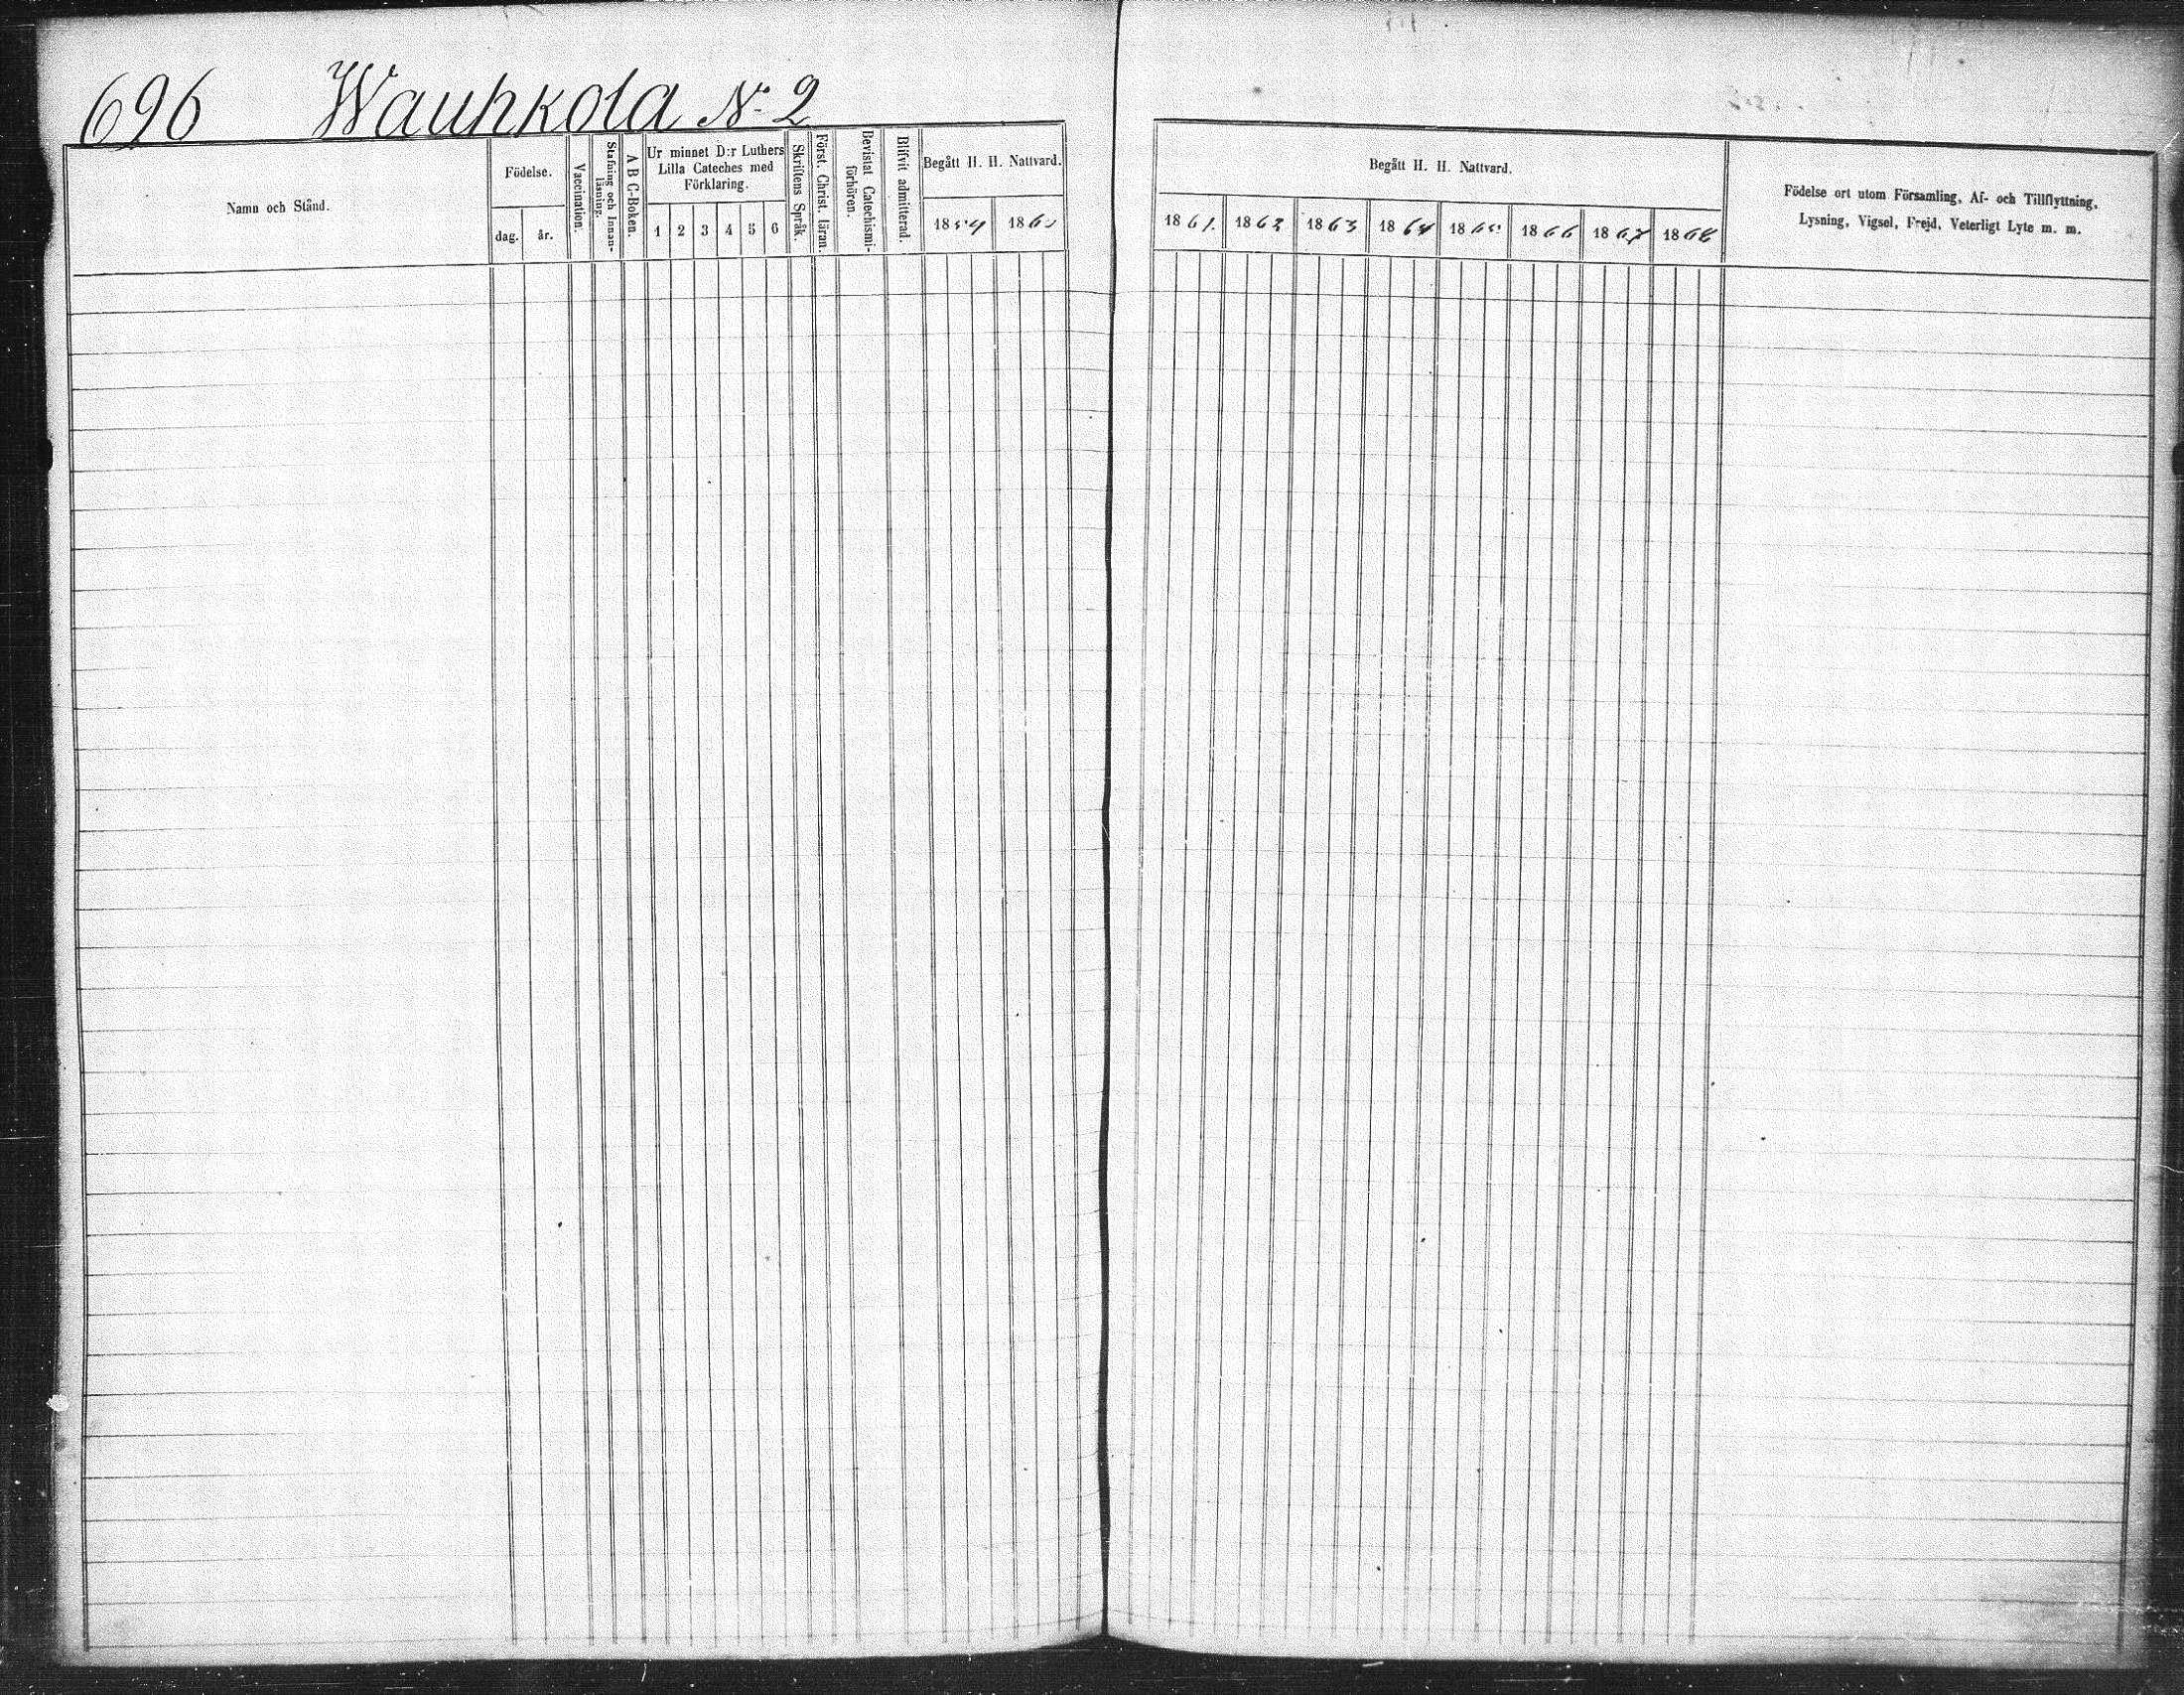 696 Wauhkola No 2
Namn och Stånd.
Födelse.
dag.
år.
Vaccination.
Stafning och Innan-
läsning.
A B C-Boken.
Ur minnet D:r Luthers
Lilla Cateches med
Förklaring.
1 2 3 4 5 6
Skriftens Språk.
Först. Christ. läran.
Bevistat Catechismi-
förhören.
Blifvit admitterad.
Begått H. H. Nattvard.
1859 1860
Begått H. H. Nattvard.
1861. 1862 1863 1864 1865 1866 1867 1868
Födelse ort utom Församling, Af- och Tillflyttning,
Lysning, Vigsel, Frejd, Veterligt Lyte m. m.